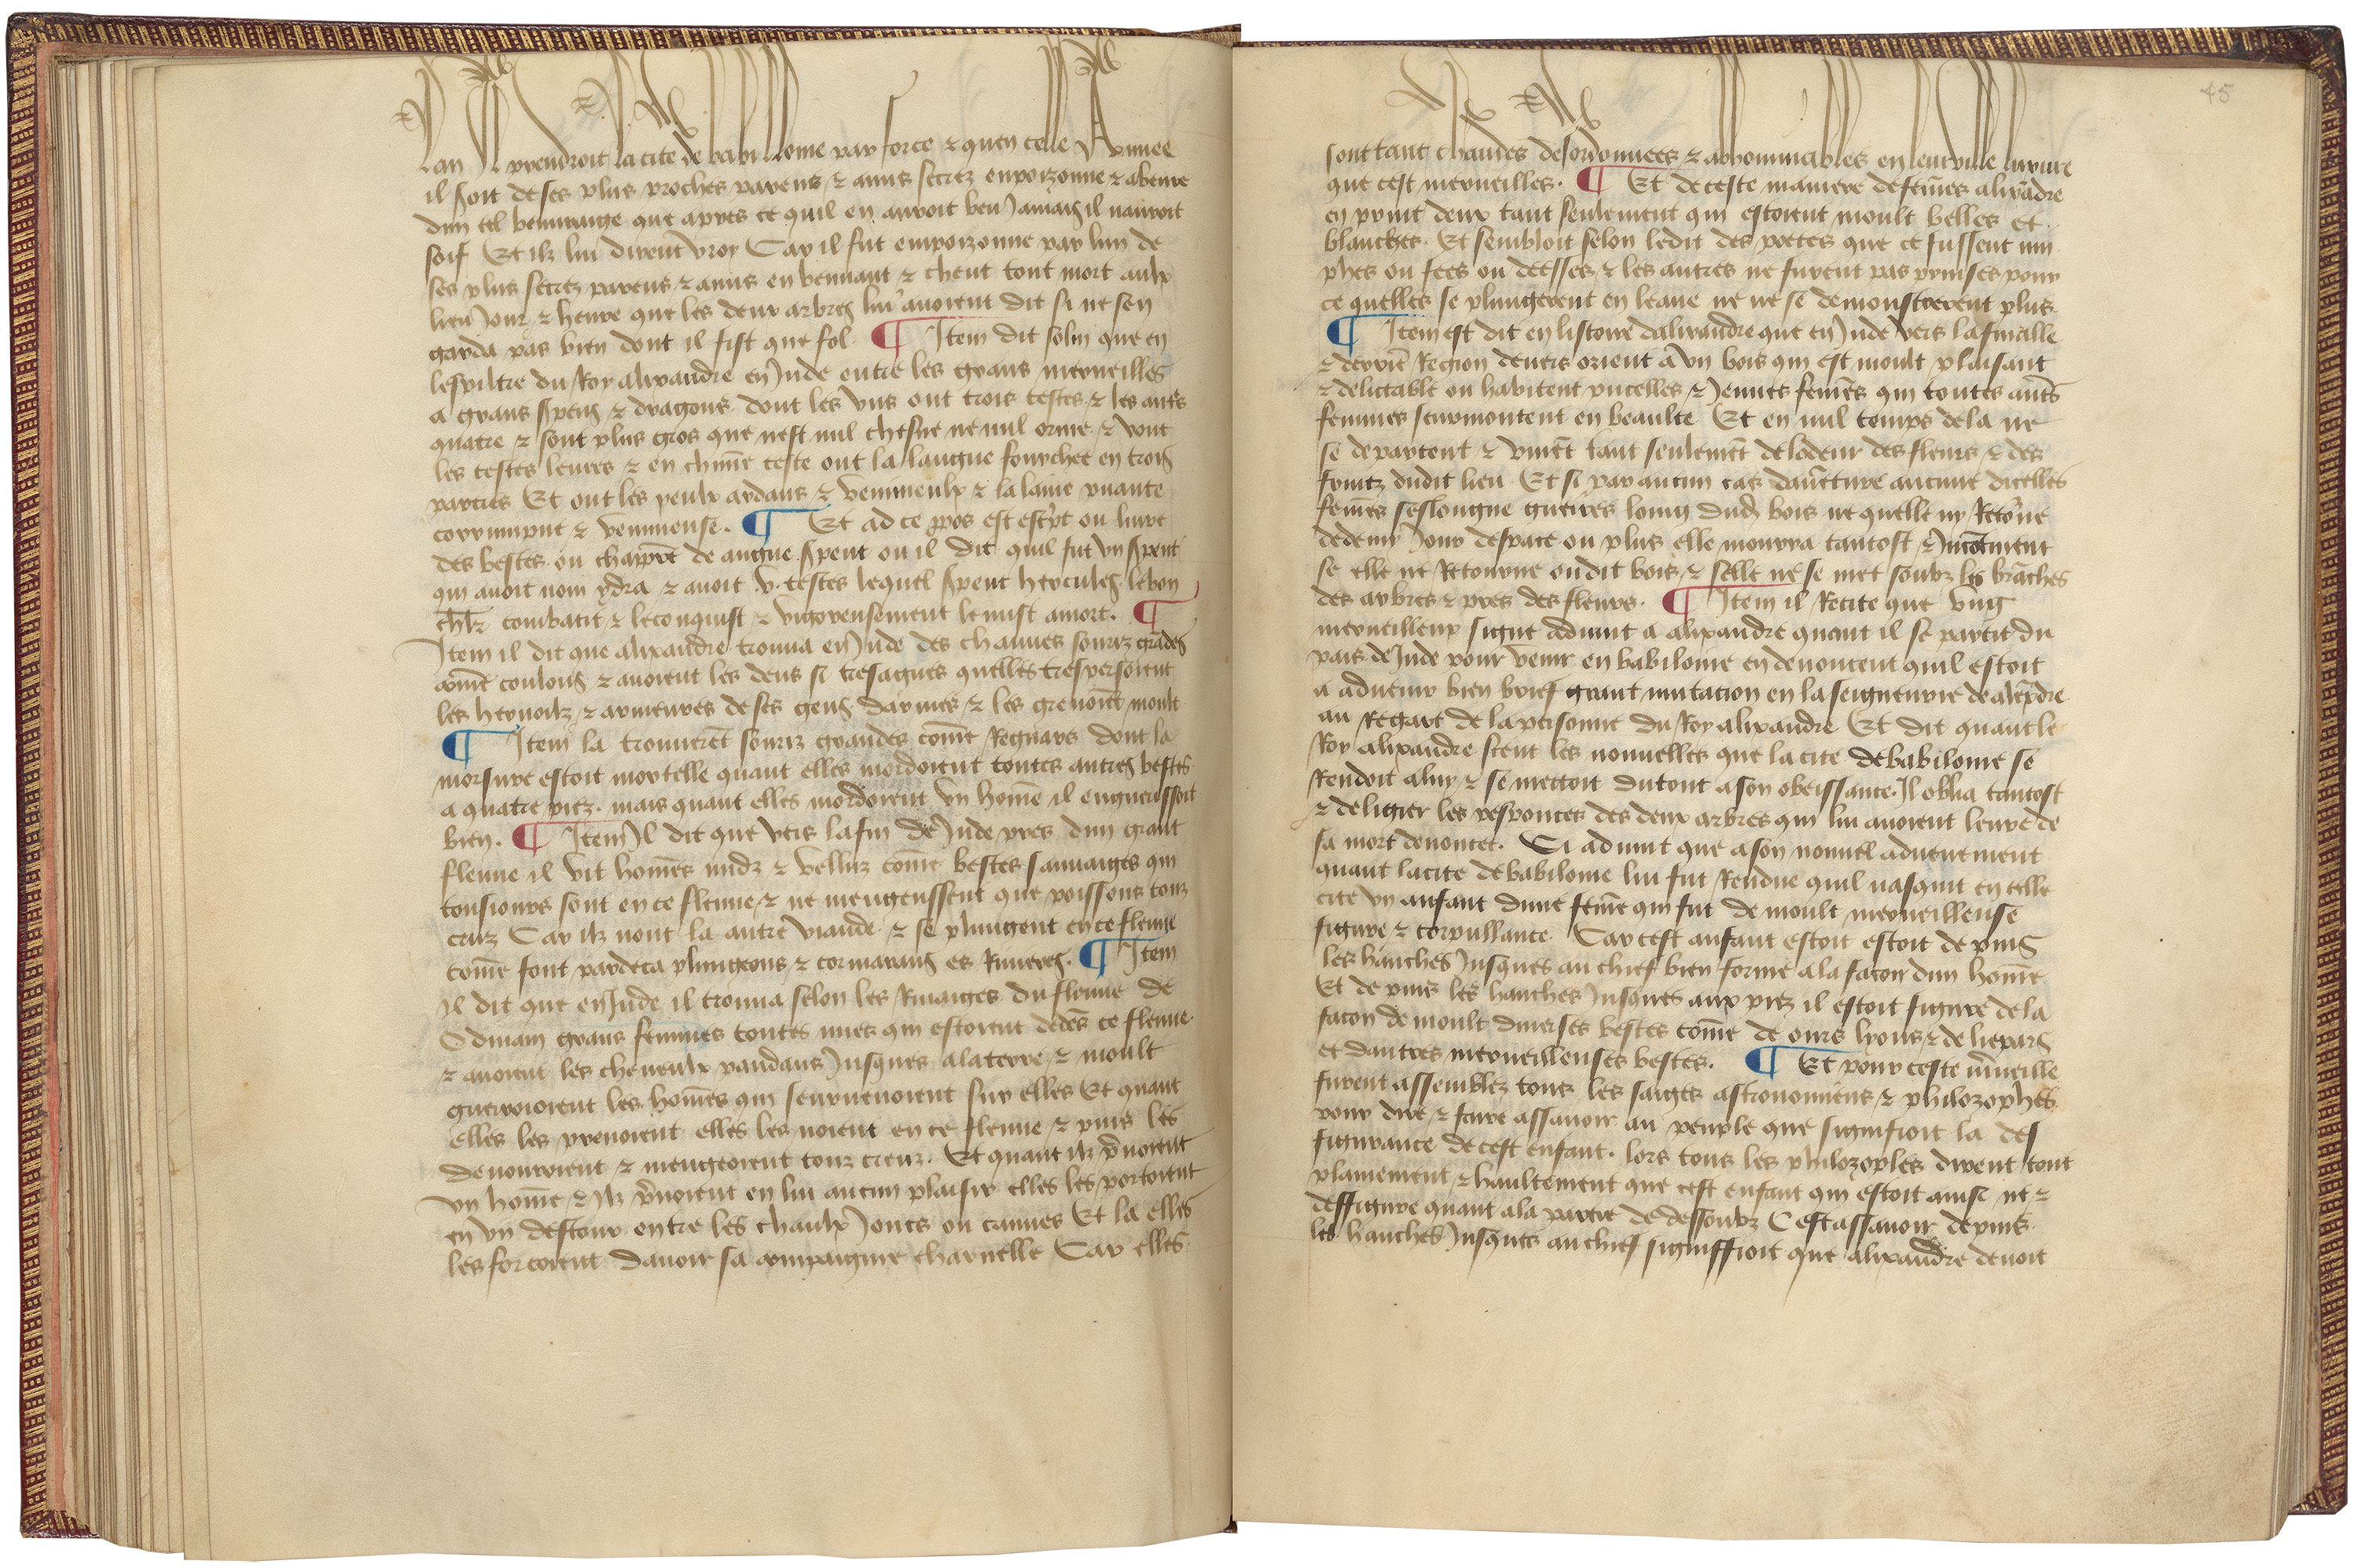 lan Il prendroit la cite de babilloine par force & quen celle Annee
il soit de ses plus proches parens & amis secrez enpoizonne & abeure
dun tel beuuraige que apres ce quil en auroit beu Jamais il nauroit
soif Et ilz lui dirent vray Car il fut empoizonne par lun de
ses plus secrez parens & amis en beuuant & cheut tout mort aulx
lieu Jour & heure que les deux arbres lui auoient dit si ne sen
garda pas bien dont il fist que fol ¶ Item dit solin que en
lespiltre du Roy alixandre en Jnde entre les grans merueilles
a grans spens & dragons dont les vns ont trois testes & les autes
quatre & sont plus gros que nest nul chesne ne nul orme & vont
les testes leuees & en chune teste ont la langue fourchee en trois
parties Et ont les yeulx ardans & venimeulx & la laine puante
corrumpue & venimeuse. ¶ Et ad ce ppos est escrpt ou liure
des bestes ou chapitre de angue spent ou il dit quil fut vn spent
qui auoit nom ydra & auoit v. testes lequel spent hercules le bon
chlr combatit & le conquist & vigoreusement le mist a mort. ¶
Item il dit que alixandre trouua en Jnde des chauues souriz grades
come coulons & auoient les dens si tresagues quelles trespersoient
les hernoilz & armeures de ses gens darmes & les greuoiet moult
¶ Item la trouueret souriz grandes come Regnars dont la
morsure estoit mortelle quant elles mordoient toutes autres bestes
a quatre piez. mais quant elles mordoient vn home il enguerissoit
bien. ¶ Item Il dit que vers la fin de Jnde pres dun grant
fleuue il vit homes nudz & velluz come bestes sauuaiges qui
tousiours sont en ce fleuue & ne mengeussent que poissons touz
cruz Car ilz nont la autre viande & se plungent en ce fleuue
come font pardeca plungeons & cormarans es Riuieres. ¶ Item
Il dit que en Jnde il trouua selon les Riuaiges du fleuue de
Odmain grans femmes toutes nues qui estoient dedes ce fleuue.
& auoient les cheueulx pandans Jusques a la terre & moult
guerroioient les homes qui seuruenoient sur elles Et quant
elles les prenoient elles les noient en ce fleuue & puis les
deuouroient & mengeoient touz creuz. Et quant ilz prnoient
vn home & ilz prnoient en lui aucun plaisir elles les portoient
en vn destour entre les chaulx Joncs ou cannes Et la elles
les forcoient dauoir sa compaignie charnelle Car elles
45
sont tant chaudes desordonnees & abhominables en leur ville luxure
que cest merueilles. ¶ Et de ceste maniere de femes alixadre
en print deux tant seulement qui estoient moult belles et
blanches. Et sembloit selon ledit des poetes que ce fussent nin
phes ou fees ou deesses & les autres ne furent pas prinses pour
ce quelles se plungerent en leaue ne ne se demonstrerent plus.
¶ Item est dit en listoire dalixandre que en Jnde vers la finalle
& derrie Region deuers orient a vn bois qui est moult plaisant
& delictable ou habitent pucelles & Jeunes femes qui toutes autes
femmes seurmontent en beaulte Et en nul temps dela ne
se departent & viuet tant seulemet de lodeur des fleurs & des
fruitz dudit lieu. Et si par aucun cas dauenture aucune dicelles
femes seslongne gueires loing dudit bois ne quelle ny Retorne
dedens Jour despace ou plus elle mourra tantost & Incotinent
se elle ne Retourne oudit bois & selle ne se met soubz les braches
des arbres & pres des fleurs. ¶ Item il Recite que vng
merueilleux signe aduint a alixandre quant il se partit du
pais de Jnde pour venir en babiloine en denoncent quil estoit
a aduenir bien brief grant mutacion en la seigneurie de alexadre
au Regart de la personne du Roy alixandre Et dit quant le
Roy alixandre sceut les nouuelles que la cite de babiloine se
Rendoit a luy & se mettoit du tout a son obeissance. Il oblia tantost
& de ligier les responces des deux arbres qui lui auoient leure de
sa mort denoncee. Ci aduint que a son nouuel aduenement
quant la cite de babiloine lui fut Rendue quil nasquit en telle
cite vn anfant dune feme qui fut de moult merueilleuse
figure & corpullance. Car cest anfant estoit estoit de puis
les hanches Jusques au chief bien forme a la facon dun home
Et de puis les hanches Jusques aux piez il estoit figure de la
facon de moult diuerses bestes come de ours lyons & de liepars
et dautres merueilleuses bestes. ¶ Et pour ceste merueille
furent assemblez tous les saiges astronomiens & philozophes
pour dire & faire assauoir au peuple que signifioit la des
figurance de cest enfant. lors tous les philozophes dirent tout
plainement & haultement que cest enfant qui estoit ainsi ne &
deffigure quant a la partie de dessoubz Cest assauoir de puis
les hanches Jusques au chief signiffioit que alixandre deuoit